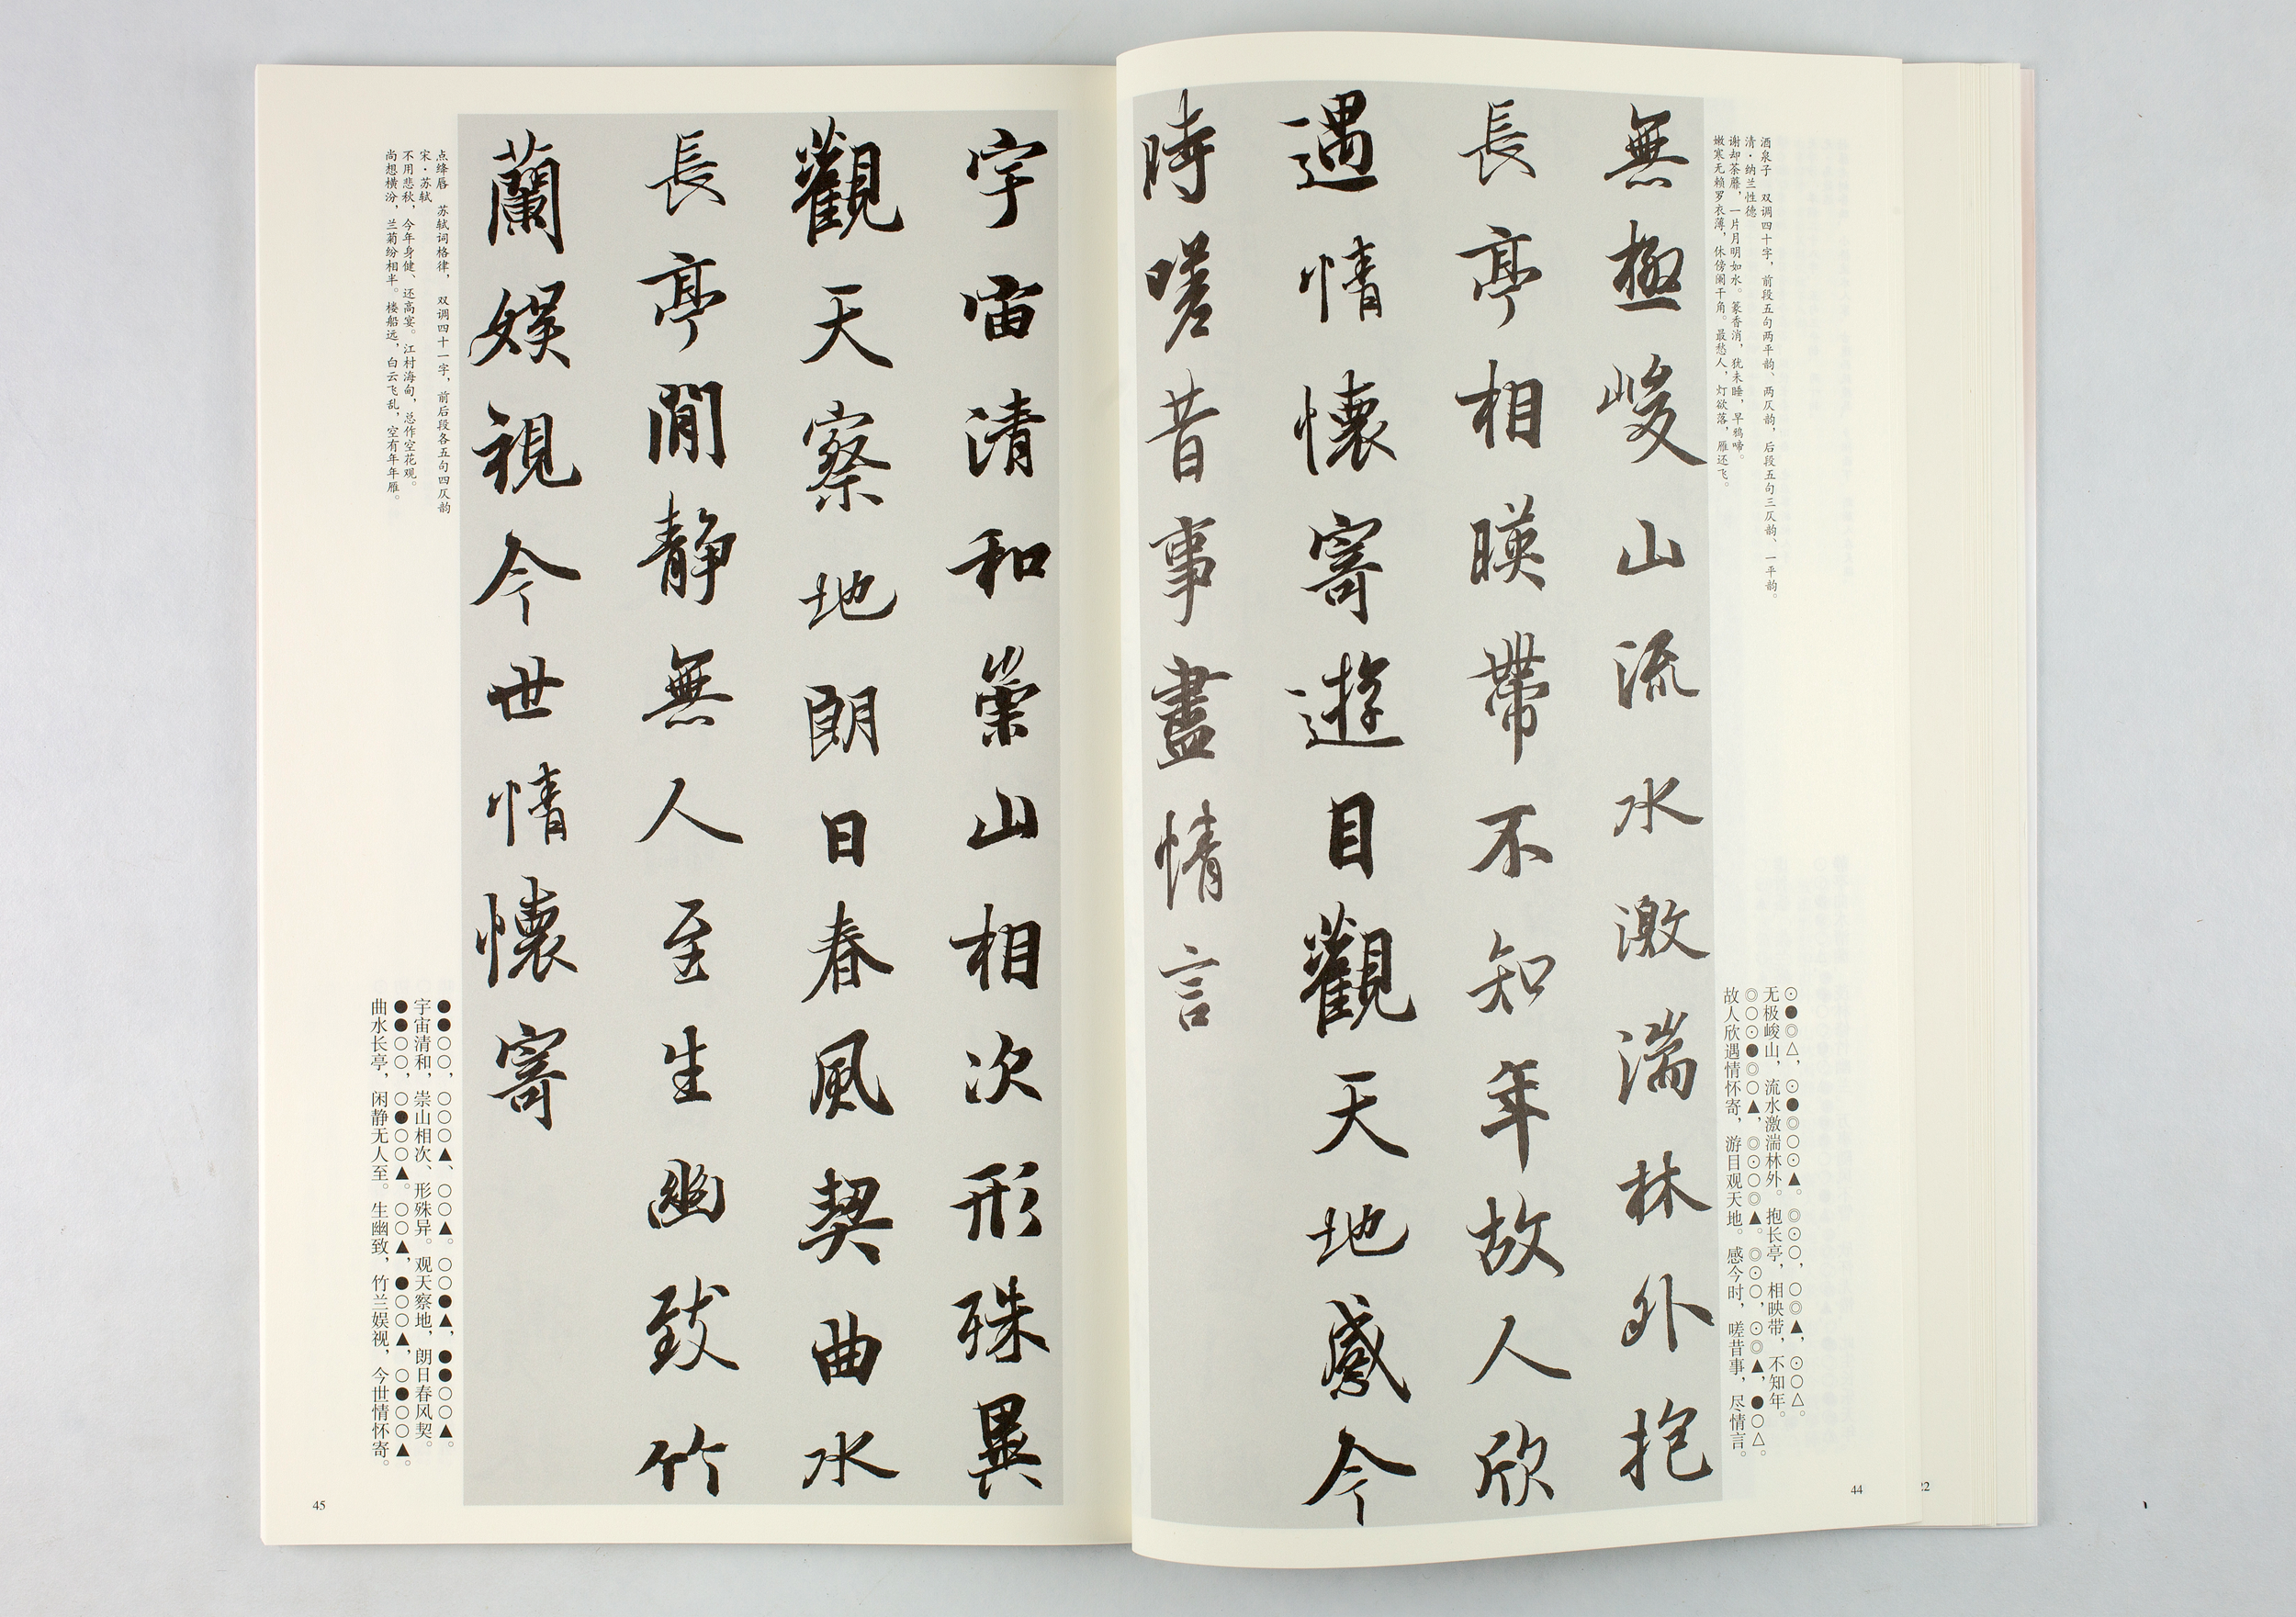 酒泉子　双调四十字，前段五句两平韵、两仄韵，后段五句三仄韵、一平韵。
清·纳兰性德
谢却荼蘼，一片月明如水。篆香消，犹未睡，早鸦啼。
嫩寒无赖罗衣薄，休傍阑干角。最愁人，灯欲落，雁还飞。
⊙●◎△，⊙●◎○⊙▲。◎⊙○，○◎▲，⊙○△。
无极峻山，流水激湍林外。抱长亭，相映带，不知年。
◎○⊙●◎○▲，◎⊙○◎▲。◎⊙○，⊙◎▲，●○△。
故人欣遇情怀寄，游目观天地。感今时，嗟昔事，尽情言。
無極峻山流水激湍林外抱
長亭相暎帶不知年故人欣
遇情懷寄遊目觀天地感今
時嗟昔事盡情言
44
22
宇宙清和崇山相次形殊異
觀天察地朗日春風契曲水
長亭閒静無人至生幽致竹
蘭娱視今世情懷寄
点绛唇　苏轼词格律，双调四十一字，前后段各五句四仄韵
宋·苏轼
不用悲秋，今年身健、还高宴。江村海甸，总作空花观。
尚想横汾，兰菊纷相半。楼船远，白云飞乱，空有年年雁。
●●○○，○○○▲、○○▲。○○●▲，●●○○▲。
宇宙清和，崇山相次、形殊异。观天察地，朗日春风契。
●●○○，○●○○▲。○○▲，●○○▲，○●○○▲。
曲水长亭，闲静无人至。生幽致，竹兰娱视，今世情怀寄。
45